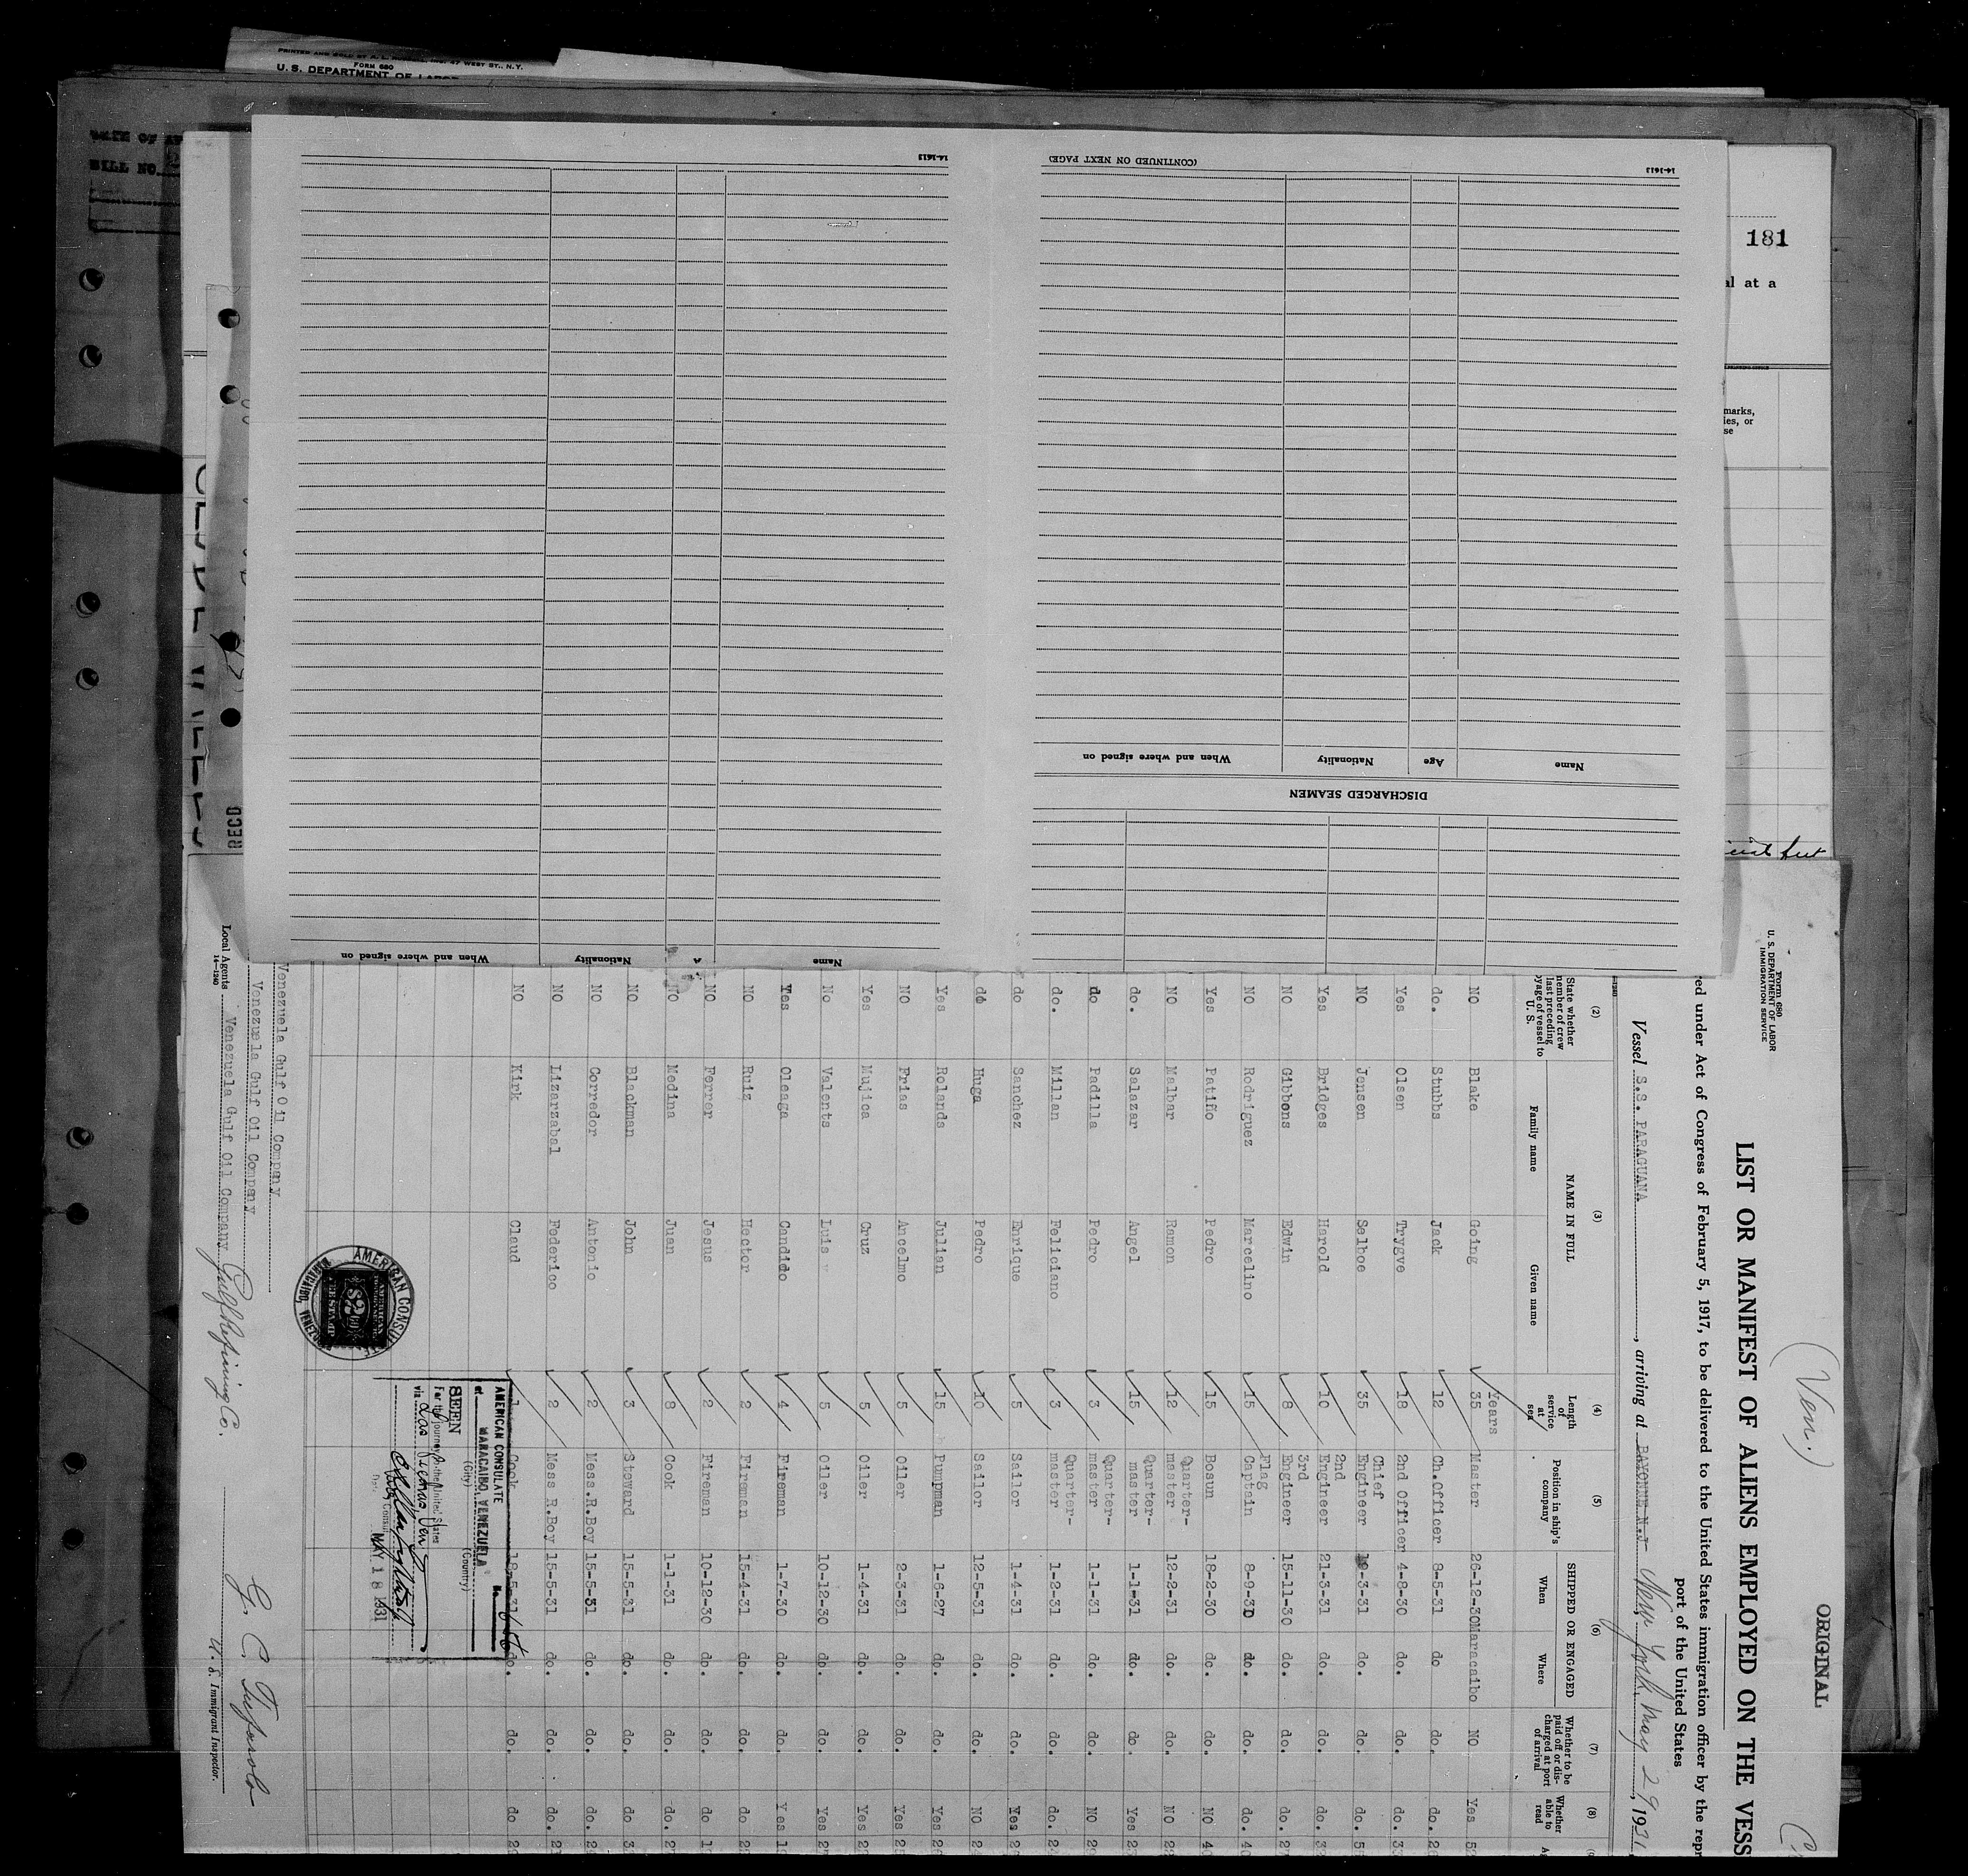 PRINTED AND SOLD BY
47 WEST ST., N.Y.
FORM 680
U. S. DEPARTMENT OF LABOR
DATE OF
BILL NO.
181
al at a
marks,
ies, or
se
14-1613
(CONTINUED ON NEXT PAGE)
14-1613
DISCHARGED SEAMEN
Name
Age
Nationality
When and where signed on
Name
A
Nationality
When and where signed on
RECD
ORIGINAL
(Ven.)
Form 680
U. S. DEPARTMENT OF LABOR
IMMIGRATION SERVICE
LIST OR MANIFEST OF ALIENS EMPLOYED ON THE VESS
red under Act of Congress of February 5, 1917, to be delivered to the United States immigration officer by the repr
port of the United States
Vessel S.S. PARAGUANA, arriving at BAYONNE N.J. New York, May 29, 1931
(2) (3) (4) (5) (6) (7) (8)
State whether member of crew last preceding voyage of vessel to U. S.
NAME IN FULL
Family name
Given name
Length of service at sea
Position in ship's company
SHIPPED OR ENGAGED
When
Where
Whether to be paid off or discharged at port of arrival
Whether able to read
Years
NO Blake Going 35 Master 26-12-30 Maracaibo NO Yes
do. Stubbs Jack 12 Ch.Officer 8-5-31 do do. do.
Yes Olsen Trygve 18 2nd Officer 4-8-30 do. do. do.
NO Jensen Selboe 35 Chief Engineer 19-3-31 do. do. do.
Yes Bridges Harold 10 2nd Engineer 21-3-31 do. do. do.
NO Gibbons Edwin 8 3rd Engineer 15-11-30 do. do. do.
NO Rodriguez Marcelino 15 Flag Captain 8-9-30 do. do. do.
Yes Patiño Pedro 15 Bosun 18-2-30 do. do. NO
NO Malbar Ramon 12 Quarter-master 12-2-31 do. do. NO
do. Salazar Angel 15 Quarter-master 1-1-31 do. do. Yes
do Padilla Pedro 3 Quarter-master 1-1-31 do. do. NO
do. Millan Feliciano 3 Quarter-master 1-2-31 do. do. do.
do Sanchez Enrique 5 Sailor 1-4-31 do. do. Yes
do Huga Pedro 10 Sailor 12-5-31 do. do. NO
Yes Rolands Julian 15 Pumpman 1-6-27 do. do. Yes
NO Frias Ancelmo 5 Oiler 2-3-31 do. do. Yes
Yes Mujica Cruz 5 Oiler 1-4-31 do. do. Yes
No Valents Luis 5 Oiler 10-12-30 do. do. Yes
Yes Oleaga Candido 4 Fireman 1-7-30 do. do. Yes
NO Ruiz Hector 2 Fireman 15-4-31 do. do. do
NO Ferrer Jesus 2 Fireman 10-12-30 do. do. do
No Medina Juan 8 Cook 1-1-31 do. do. do.
NO Blackman John 3 Steward 15-5-31 do. do. do
NO Corredor Antonio 2 Mess.R.Boy 15-5-31 do. do. do.
NO Lizarzabal Federico 2 Mess R.Boy 15-5-31 do. do. do.
NO Kink Claud 1 Cook 18-5-31 do. do. do
AMERICAN CONSULATE
at MARACAIBO VENEZUELA
(City) (Country)
SEEN
For the journey to the United States
via Las Piedras Ven
Vice Consul
MAY 18 1931
AMERICAN CONSULATE
MARACAIBO, VENEZUELA
FEE STAMP
Venezuela Gulf Oil Company
Venezuela Gulf Oil Company
Local Agents Venezuela Gulf Oil Company Gulf Refining Co.
14-1240
U. S. Immigrant Inspector.